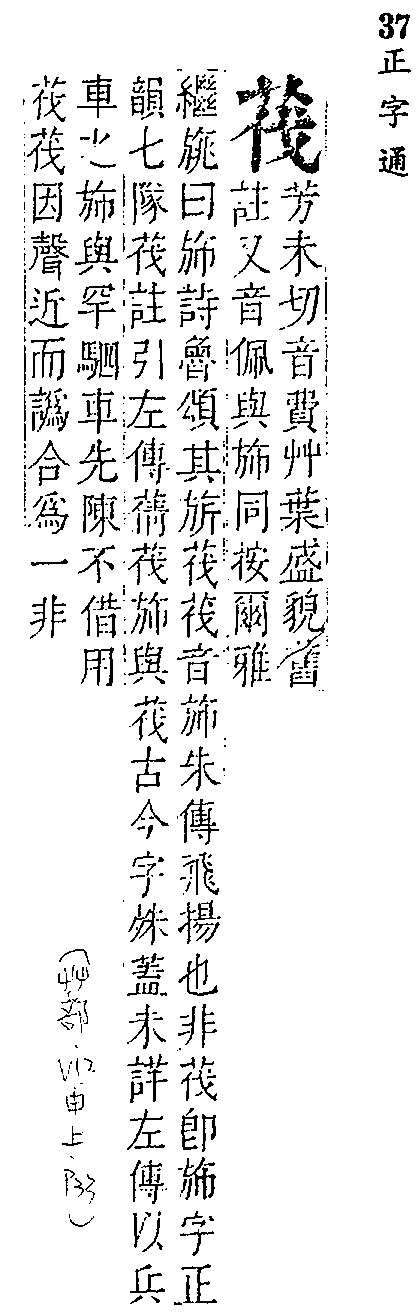 37正字通
茷
芳未切音費艸葉盛貌舊
註又音佩與斾同按爾雅
繼旐曰斾詩魯頌其旂茷茷音斾朱傳飛揚也非茷卽斾字正
韻七隊茷註引左傳蒨茷斾與茷古今字殊蓋未詳左傳以兵
車之斾與罕駟車先陳不借用
茷茷因聲近而譌合爲一非
(艸部.V12申上.P33)